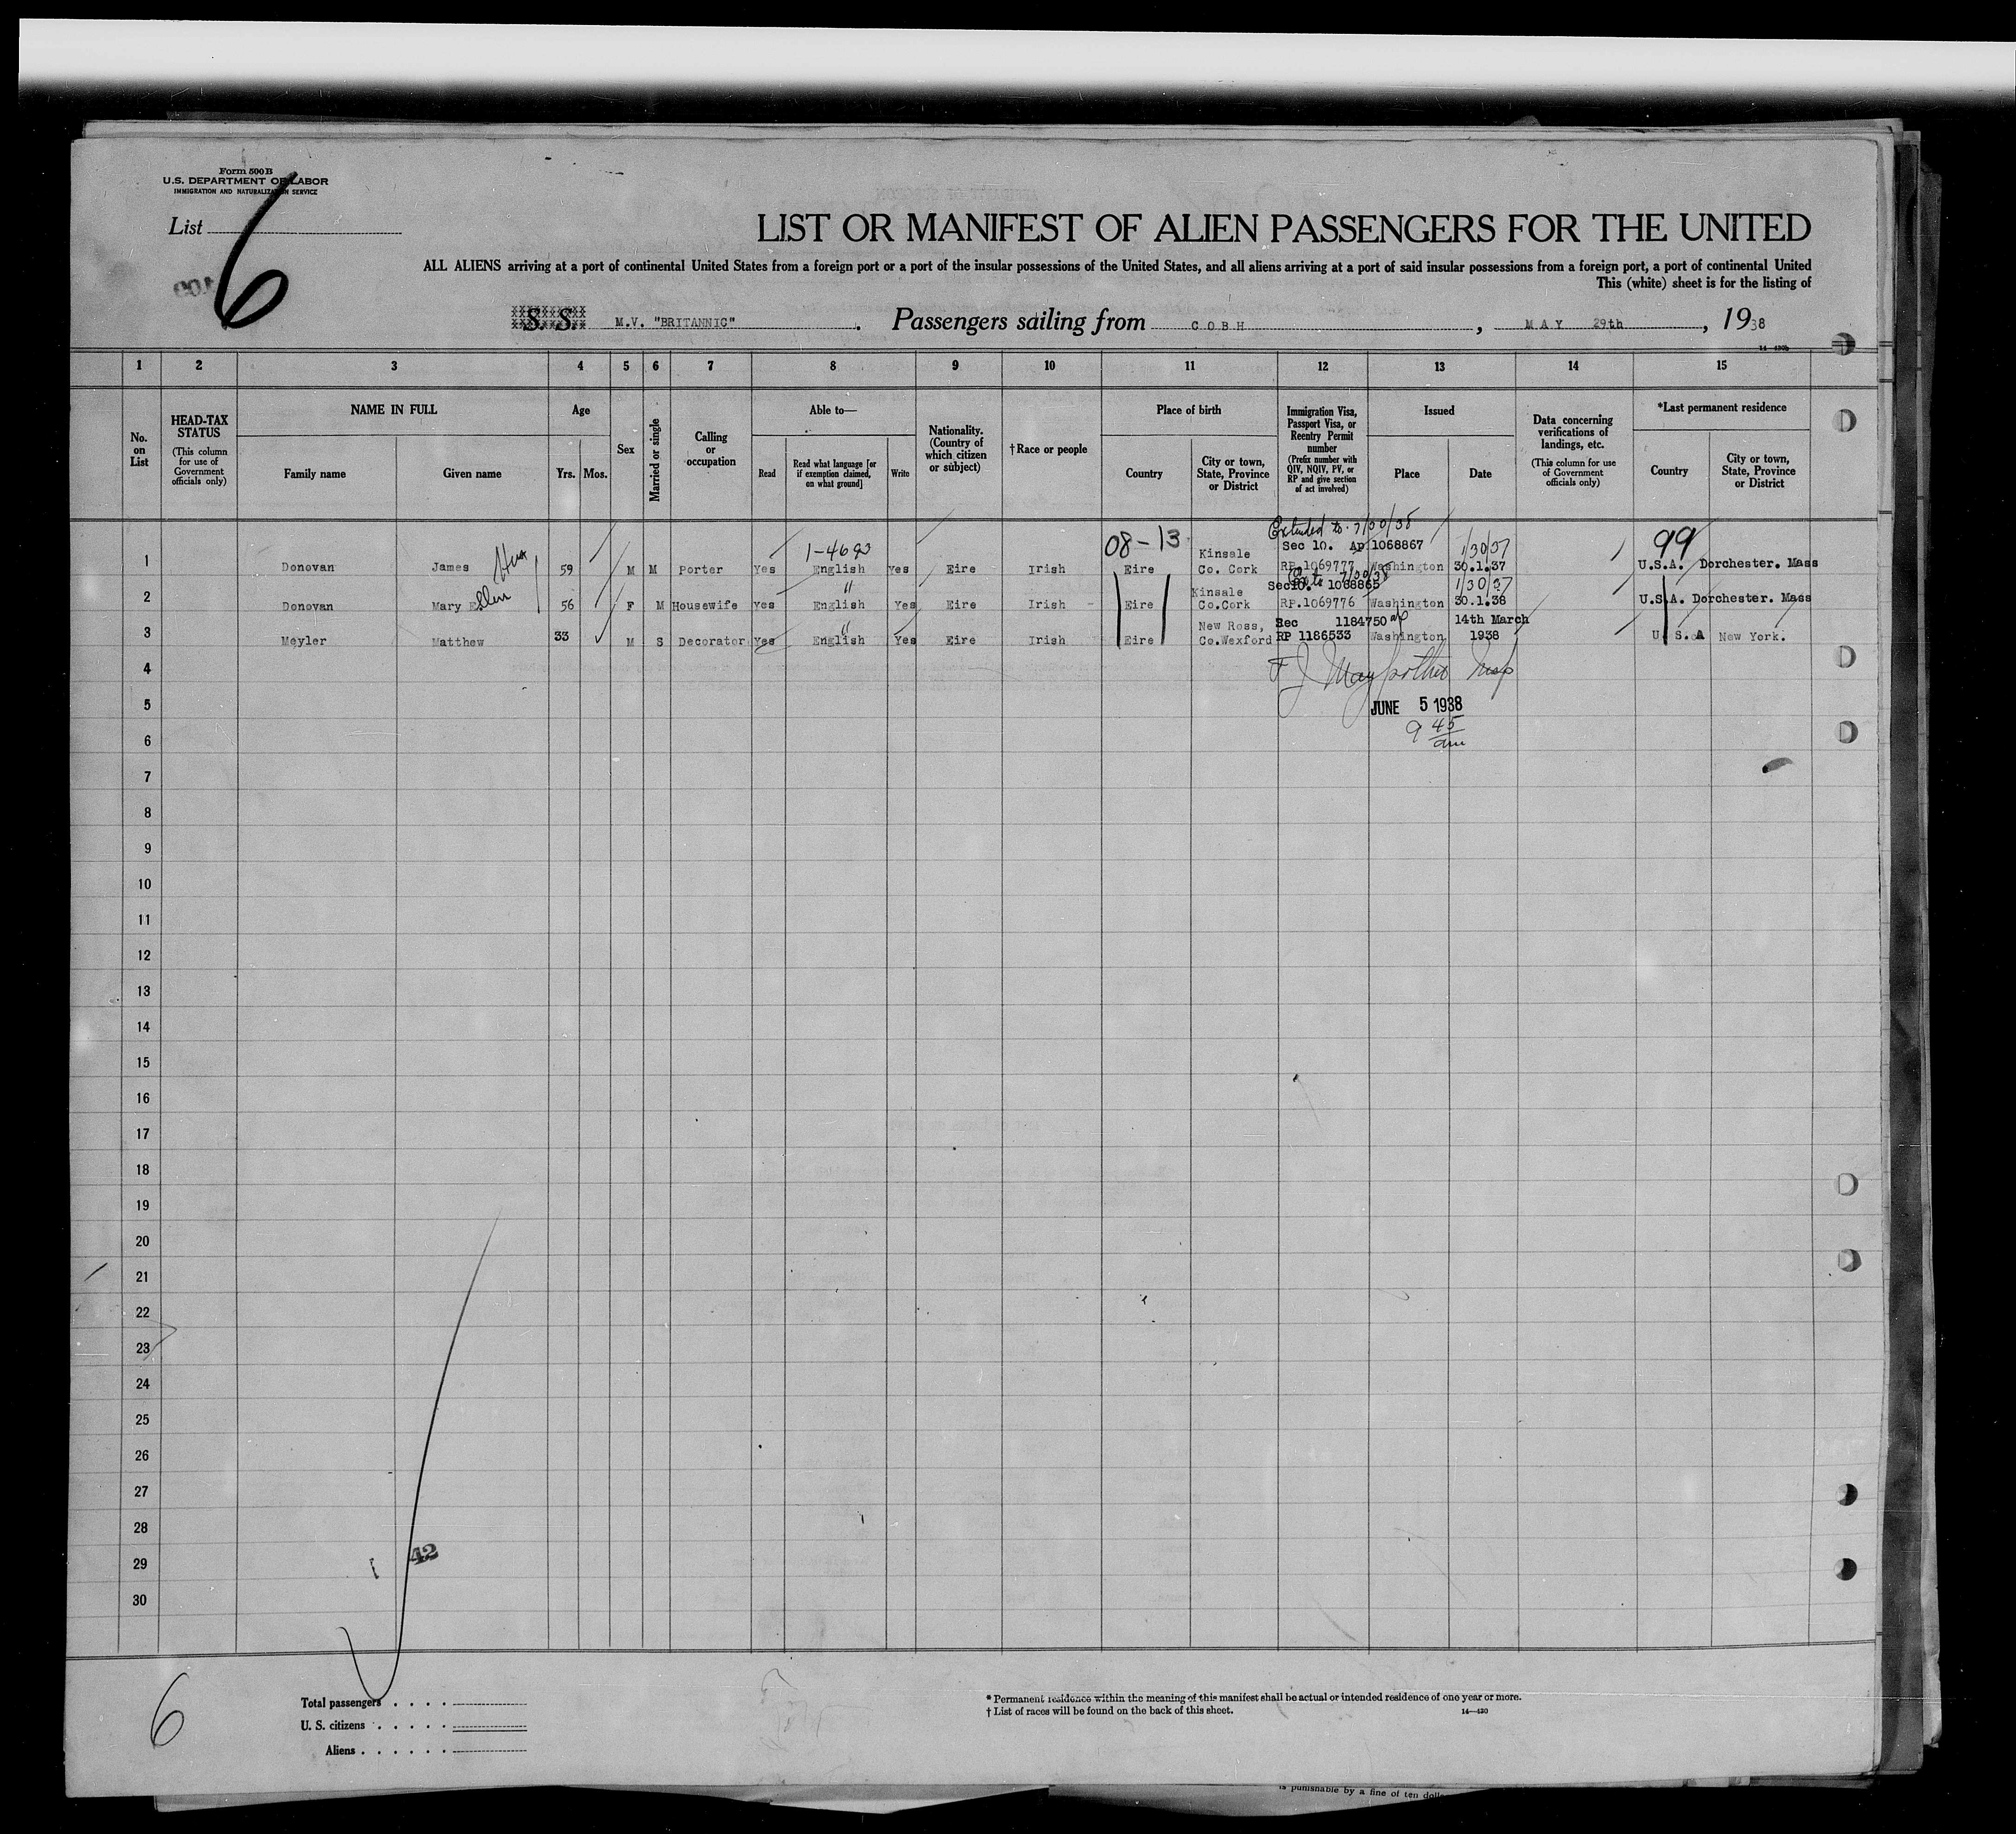 Form 500 B
U.S. DEPARTMENT OF LABOR
IMMIGRATION AND NATURALIZATION SERVICE
List
6
LIST OR MANIFEST OF ALIEN PASSENGERS FOR THE UNITED
ALL ALIENS arriving at a port of continental United States from a foreign port or a port of the insular possessions of the United States, and all aliens arriving at a port of said insular possessions from a foreign port, a port of continental United
This (white) sheet is for the listing of
S. S. M.V. "BRITANNIC". Passengers sailing from COBH, MAY 29th, 1938
1 2 3 4 5 6 7 8 9 10 11 12 13 14 15
No. on List
HEAD-TAX STATUS
(This column for use of Government officials only)
NAME IN FULL
Family name Given name
Age
Yrs. Mos.
Sex
Married or single
Calling or occupation
Able to—
Read Read what language [or if exemption claimed, on what ground] Write
Nationality. (Country of which citizen or subject)
†Race or people
Place of birth
Country City or town, State, Province or District
Immigration Visa, Passport Visa, or Reentry Permit number
(Prefix number with QIV, NQIV, PV, or RP and give section of act involved)
Issued
Place Date
Data concerning verifications of landings, etc.
(This column for use of Government officials only)
*Last permanent residence
Country City or town, State, Province or District
Extended to 7/30/38
1-4693 08-13 Kinsale Sec 10. Ap 1068867 1/30/37 99
1 Donovan James 59 M M Porter Yes English Yes Eire Irish Eire Co. Cork RP.1069777 Washington 30.1.37 U.S.A. Dorchester. Mass
" Kinsale Sec10. 1068865 1/30/37
2 Donovan Mary Ellen 56 F M Housewife Yes English Yes Eire Irish Eire Co.Cork RP.1069776 Washington 30.1.38 U.S.A. Dorchester. Mass
" New Ross, Sec 1184750 14th March
3 Meyler Matthew 33 M S Decorator Yes English Yes Eire Irish Eire Co.Wexford RP 1186533 Washington 1938 U.S.A New York.
4
5 JUNE 5 1938
6 9 45 am
7
8
9
10
11
12
13
14
15
16
17
18
19
20
21
22
23
24
25
26
27
28
29 42
30
6
Total passengers
U. S. citizens
Aliens
* Permanent residence within the meaning of this manifest shall be actual or intended residence of one year or more.
† List of races will be found on the back of this sheet. 14—430
is punishable by a fine of ten